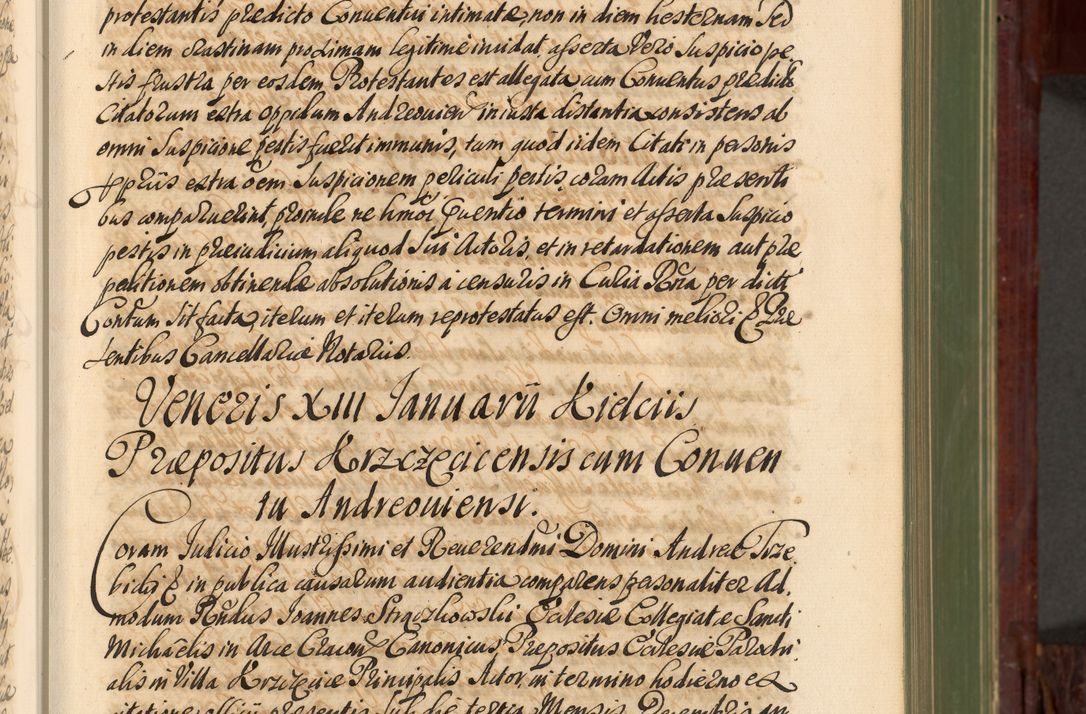 protestantis predicto Conuentui intimatæ, non in diem hesternam sed
in diem crastinam proximam legitime incidat asserta Vero Suspicio pe
stis frustra per eosdem Protestantes est allegata, cum Conuentus prædict
Citatorum extra oppidum Andreouien in iusta distantia consistens ab
omni Suspicione pestis fuerit immunis, tam quod iidem Citati in personis
ppriis extra oem Suspicionem periculi pestis, coram Actis præsenti
bus comparuerint, proinde ne hmoi termini et asserta Suspicio
pestis in præiudicium aliquod Sui Actoris, et in retardationem aut præ
peditionem obtinendæ absolutionis a censuris in Curia Rna per dictu
Contum Sit facta, iterum et iterum reprotestatus est. Omni meliori Præ
sentibus Cancellariæ Notariis.
Veneris XIII Januarii Kielciis
Præpositus Krzczęcicensis cum Conuen
tu Andreouiensi.
Coram Iudicio Illustrissimi et Reuerendmi Domini Andreæ Trze
bicki in publica causarum audientia comparens personaliter Ad.
modum Rndus Ioannes Stroczkowski Ecclesiæ Collegiatæ Sancti
Michaelis in Arce Cracou Canonicus, Præpositus Ecclesiæ Parochi
alis in Villa Krzczęcice Principalis Actor, in termino hodierno ex
citatione officii præsentis sub die tertia Mensis Decembris an